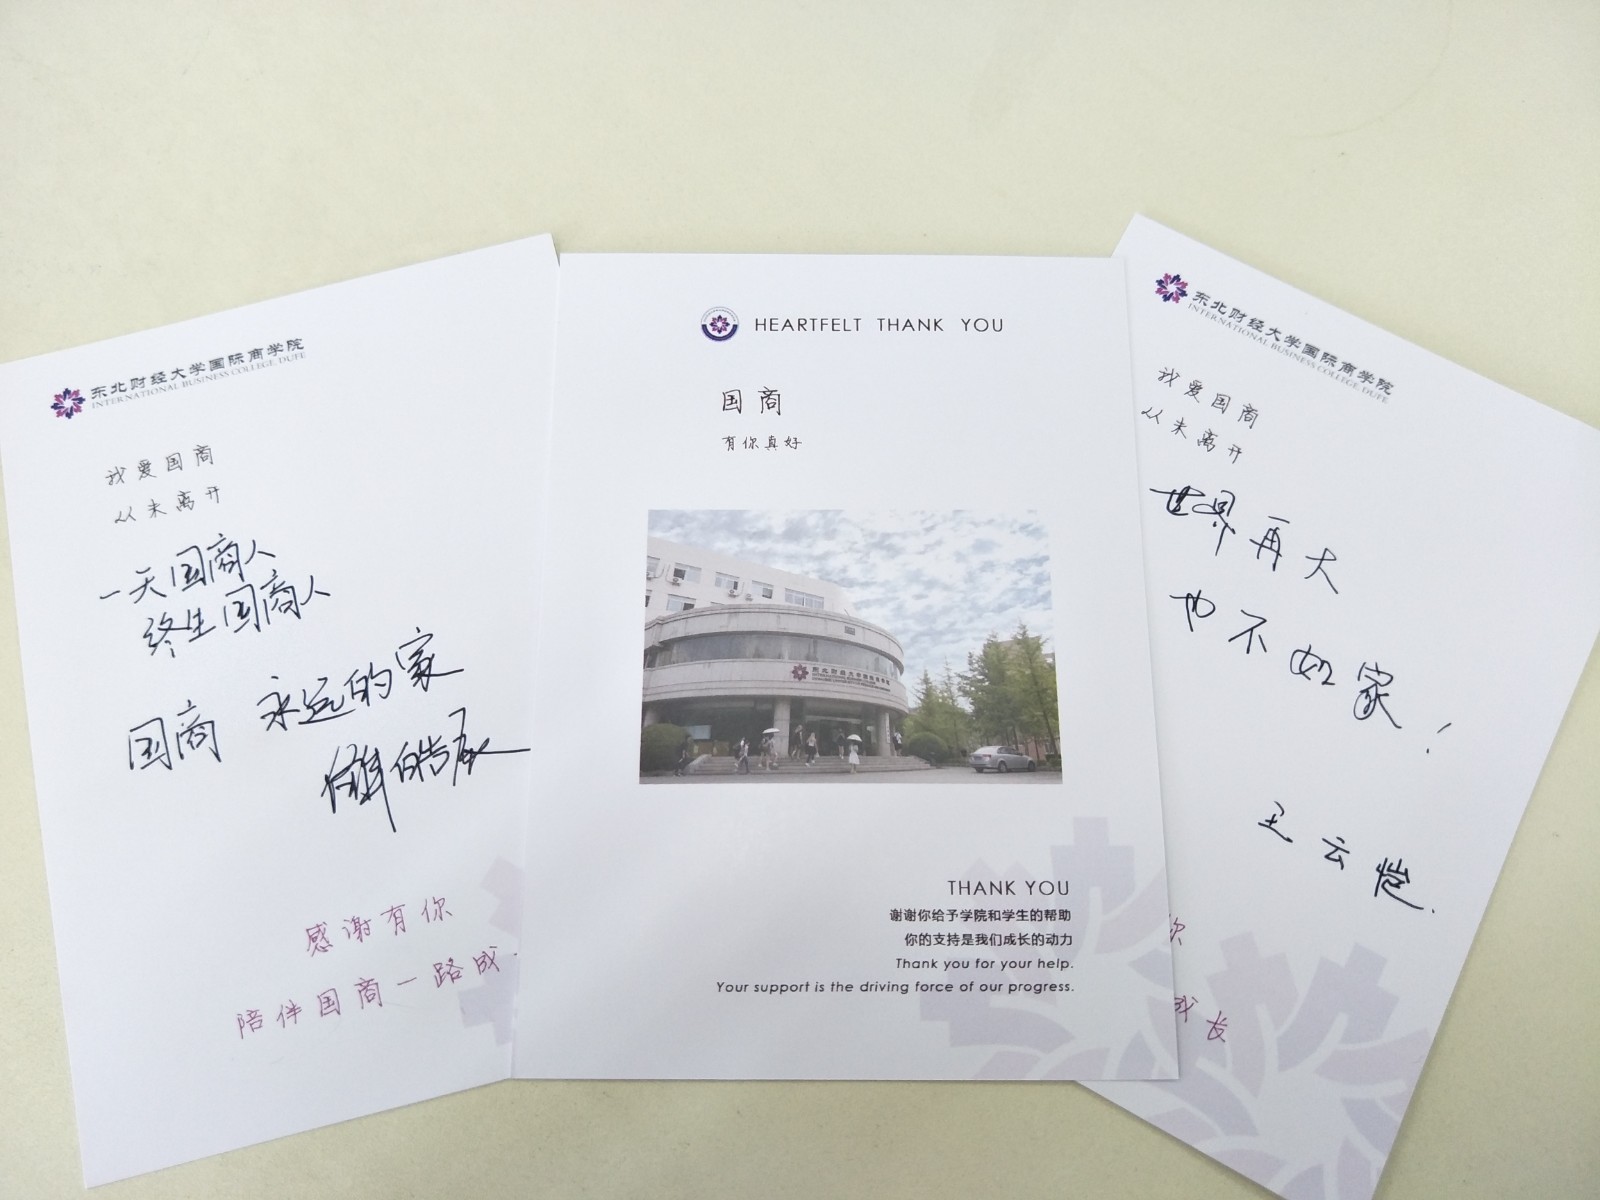 东北财经大学国际商学院
INTERNATIONAL BUSINESS COLLEGE DUFE
我爱国商
从未离开
一天国商人
终生国商人
国商 永远的家
皓
感谢有你
陪伴国商一路成
HEARTFELT THANK YOU
国商
有你真好
东北财经大学国际商学院
THANK YOU
谢谢你给予学院和学生的帮助
你的支持是我们成长的动力
Thank you for your help.
Your support is the driving force of our progress.
东北财经大学国际商学院
INTERNATIONAL BUSINESS COLLEGE DUFE
我爱国商
从未离开
世界再大
也不如家！
王云恺.
你
成长